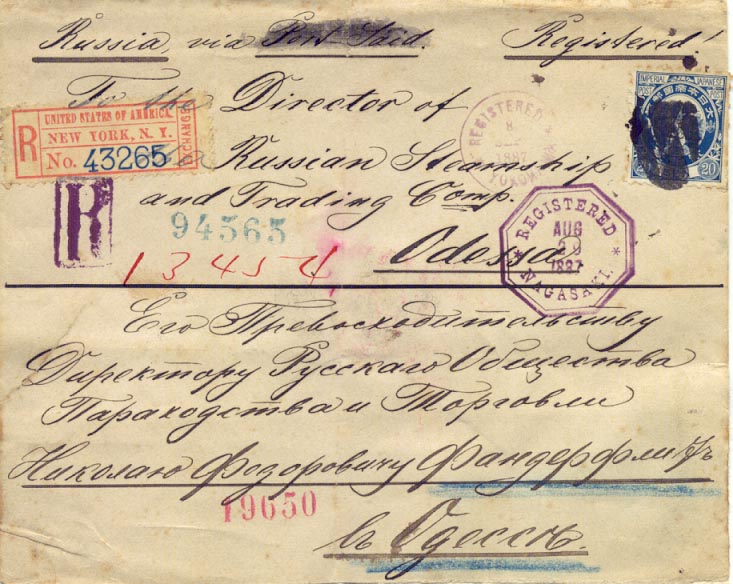 Russia, via Port Said. Registered!
To the Director of
Russian Steamship
and Trading Comp.
Odessa
UNITED STATES OF AMERICA.
NEW YORK, N. Y.
EXCHANGE
R No. 43265
R
94565
13454
REGISTERED
8
1887
YOKOHAMA
IMPERIAL JAPANESE
POST
大日本帝國郵
20
REGISTERED
AUG
29
1887
NAGASAKI.
Его Превосходительству
Директору Русскаго Общества
Параходства и Торговли
Николаю Федоровичу Фандерфлитъ
19650
въ Одессѣ.